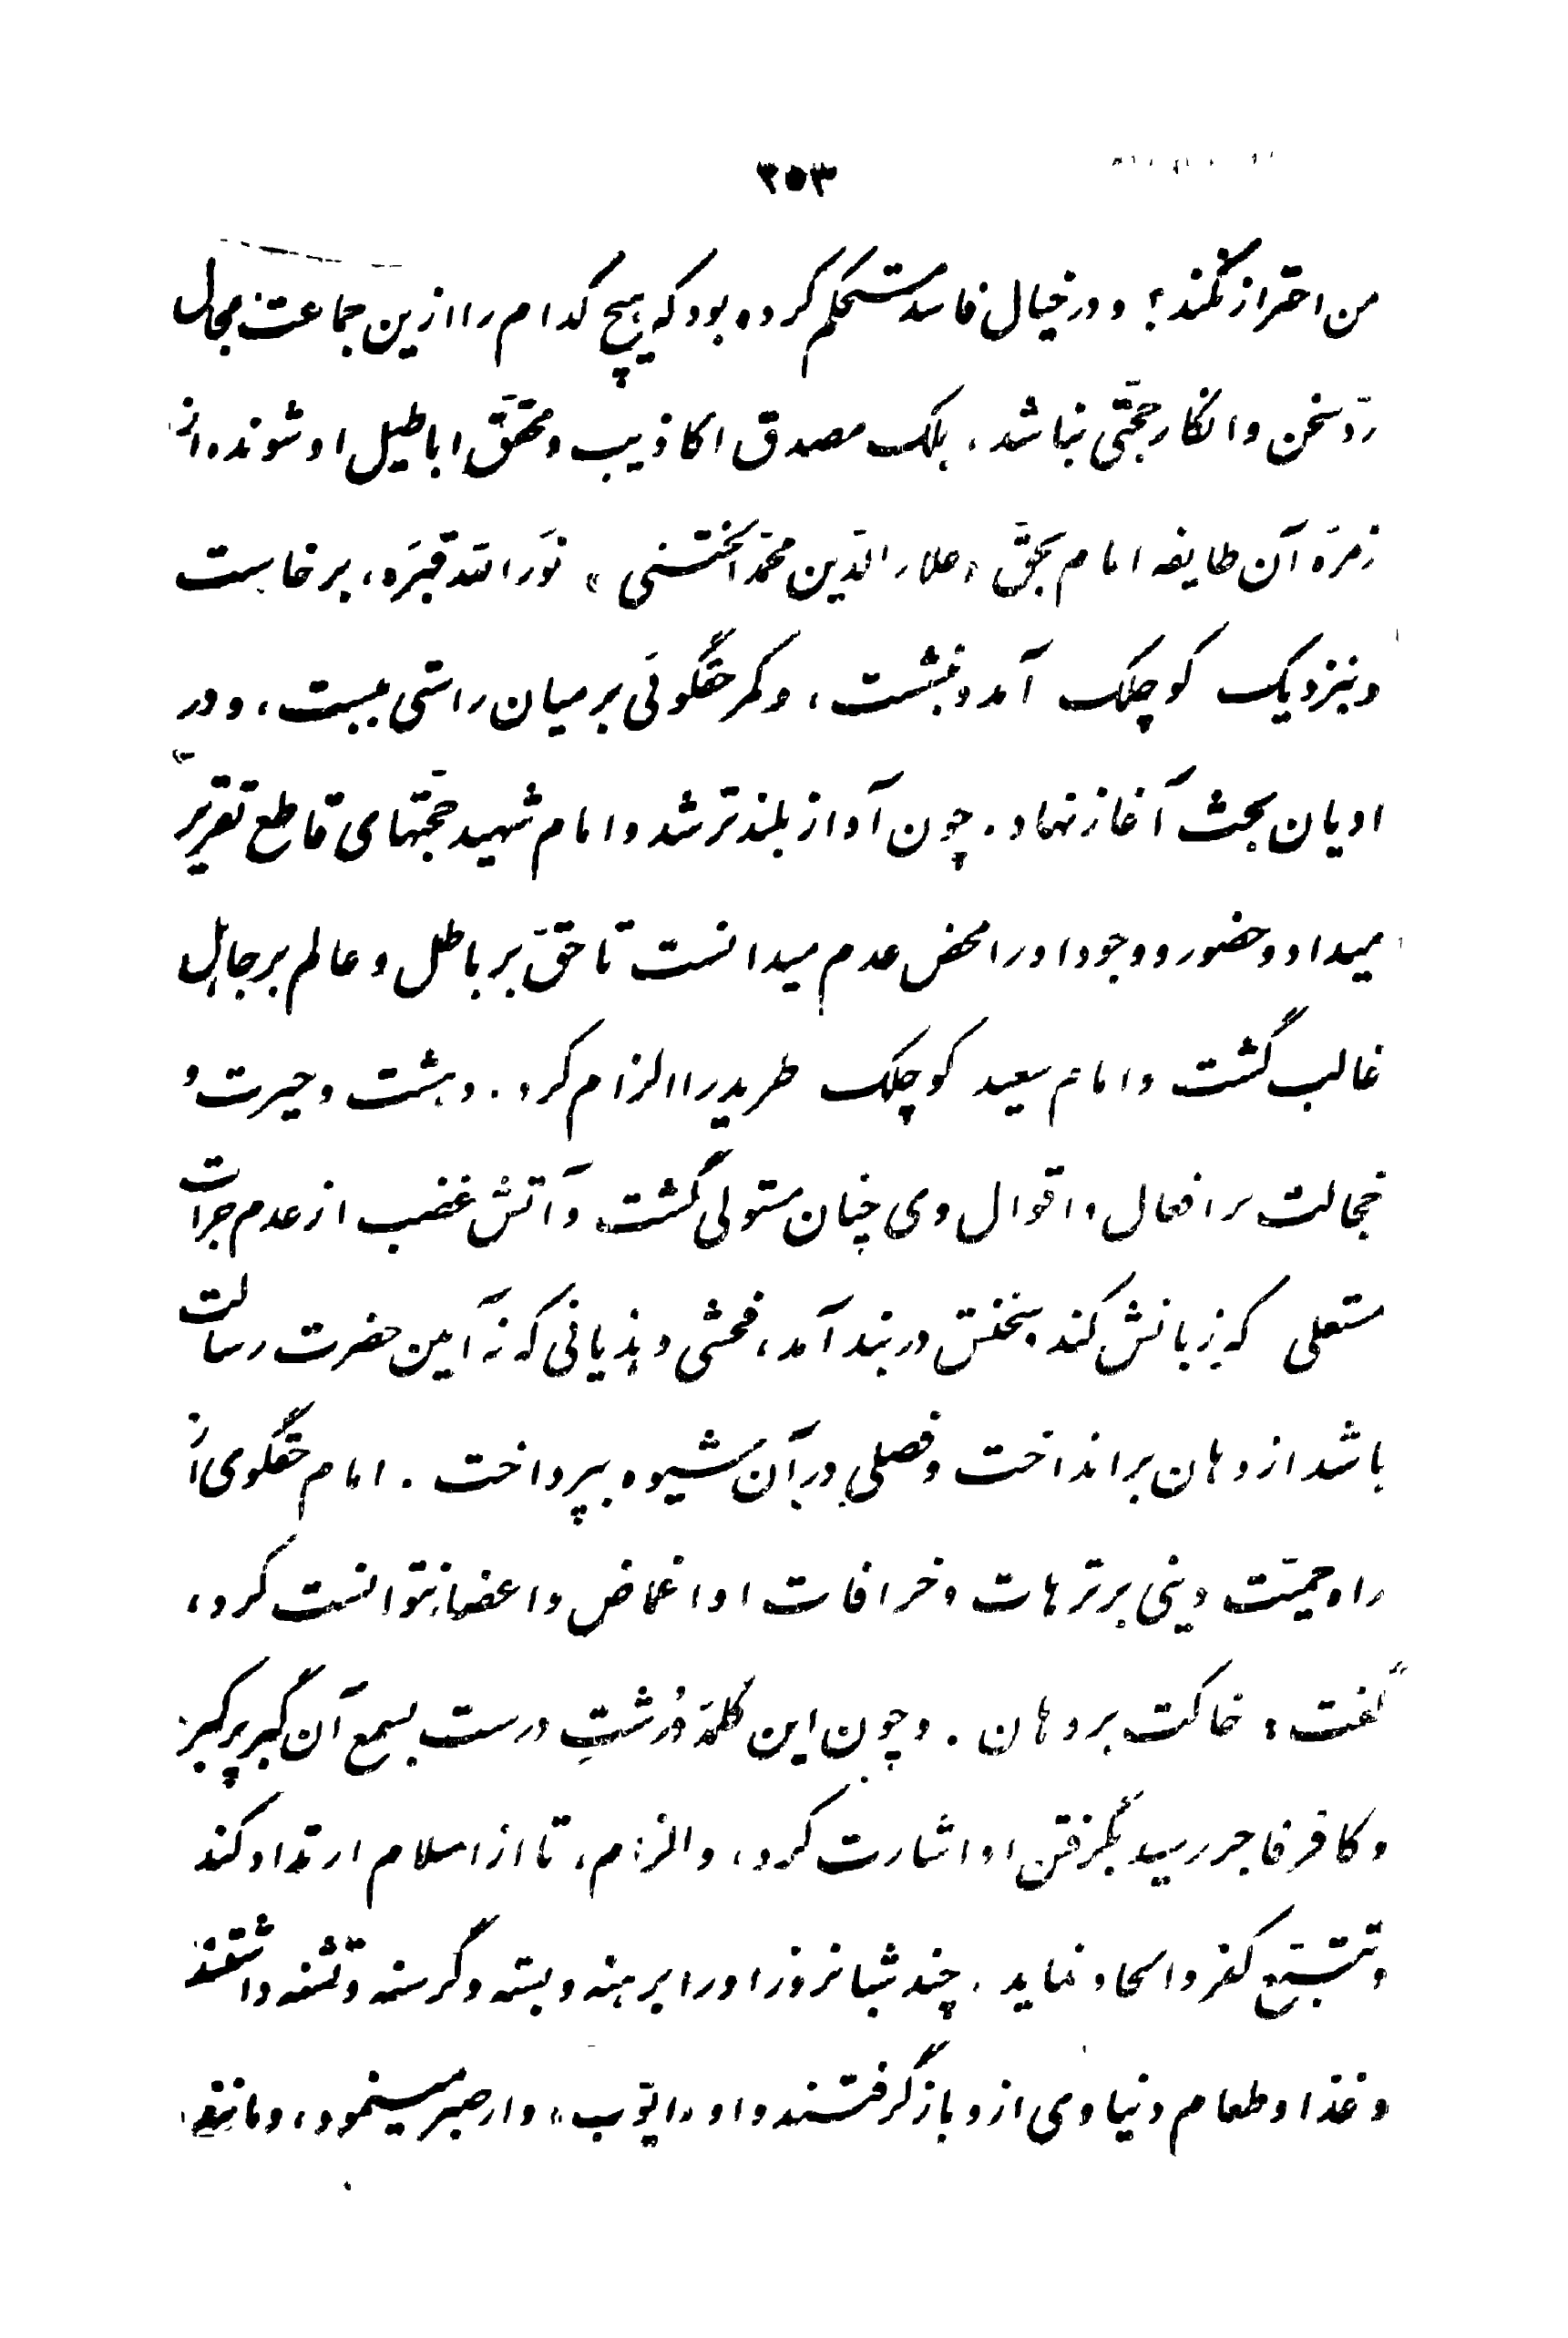 ۲۵۳
من احتراز نکند؟ و در خیال فاسد مستحکم کرده بود که هیچ کدام را ازین جماعت مجال
ردّ سخن و انکار حجّتی نباشد، بلک مصدق اکاذیب و محقّق اباطیل او شوند، از
زمرهٔ آن طایفه امام بحقّ «علاء الدّین محمّد الختنی» نوّر الله قبره، برخاست
و بنزدیک کوچلک آمد و بنشست، و کمر حقگوئی بر میان راستی ببست، و در
ادیان بحث آغاز نهاد. چون آواز بلندتر شد و امام شهید حجّتهای قاطع تقریر
میداد و حضور و وجود او را محض عدم میدانست تا حقّ بر باطل و عالم بر جاهل
غالب گشت و امام سعید کوچلک طرید را الزام کرد. دهشت و حیرت و
خجالت بر افعال و اقوال وی چنان مستولی گشت و آتش غضب از عدم جرأت
مستعلی که زبانش کند و سخنش در بند آمد، فحشی و هذیانی که نه آیین حضرت رسالت
باشد از دهان برانداخت و فصلی در آن شیوه بپرداخت. امام حقگوی از
راه حمیّت دینی بر ترهات و خرافات او اغماض و اغضا نتوانست کرد،
گفت: خاکت بر دهان. و چون این کلمهٔ دُرشتِ درست بسمع آن گبر پرکبر
و کافر فاجر رسید بگرفتن او اشارت کرد، و الزام، تا از اسلام ارتداد کند
و تتبّع کفر و الحاد نماید. چند شبانروز او را برهنه و بسته و گرسنه و تشنه داشتند
و غذا و طعام دنیاوی ازو باز گرفتند و او «ایّوب» وار صبر مینمود، و مانند